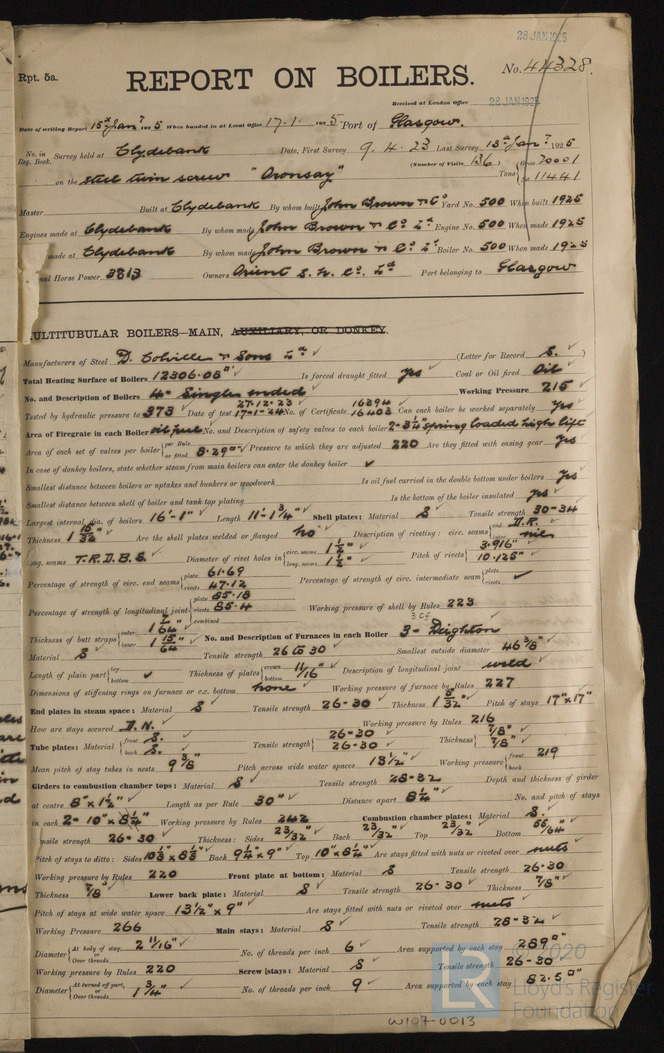 28 JAN 1925
Rpt. 5a.
REPORT ON BOILERS.
No. 44328.
Received at London Office 28 JAN 1925
Date of writing Report 15th Jany 1925 When handed in at Local Office 17.1. 1925 Port of Glasgow.
No. in Survey held at Clydebank Date, First Survey 9.4.23 Last Survey 13th Jany 1925
Reg. Book. (Number of Visits 136) Gross 20001
on the steel twin screw "Oronsay" Tons Net 11441
Master Built at Clydebank By whom built John Brown & Co Yard No. 500 When built 1925
Engines made at Clydebank By whom made John Brown & Co Ld Engine No. 500 When made 1925
made at Clydebank By whom made John Brown & Co Ld Boiler No. 500 When made 1925
nal Horse Power 3813 Owners Orient S. N. Co. Ld Port belonging to Glasgow
ULTITUBULAR BOILERS—MAIN, AUXILIARY, OR DONKEY.
Manufacturers of Steel D. Colville & Sons Ld (Letter for Record S.)
Total Heating Surface of Boilers 12306.08 Is forced draught fitted yes Coal or Oil fired Oil
No. and Description of Boilers 4 - Single ended Working Pressure 215
27.12.23 16394
Tested by hydraulic pressure to 373 Date of test 17-1-24 No. of Certificate 16403 Can each boiler be worked separately Yes
Area of Firegrate in each Boiler oil fuel No. and Description of safety valves to each boiler 2-3¼" spring loaded high lift
Area of each set of valves per boiler per Rule as fitted 8.29 Pressure to which they are adjusted 220 Are they fitted with easing gear Yes
In case of donkey boilers, state whether steam from main boilers can enter the donkey boiler ✓
Smallest distance between boilers or uptakes and bunkers or woodwork Is oil fuel carried in the double bottom under boilers Yes
Smallest distance between shell of boiler and tank top plating Is the bottom of the boiler insulated yes
Largest internal dia. of boilers 16'-1" Length 11'-1¾" Shell plates: Material S Tensile strength 30-34
Thickness 1 15/32" Are the shell plates welded or flanged No Description of riveting: circ. seams end D.R. inter. nil
long. seams T.R.D.B.S. Diameter of rivet holes in circ. seams 1½" long. seams 1½" Pitch of rivets 3.916" 10.125"
Percentage of strength of circ. end seams plate 61.69 rivets 47.12 Percentage of strength of circ. intermediate seam plate rivets ✓
Percentage of strength of longitudinal joint plate 85.18 rivets 85.4 combined Working pressure of shell by Rules 223
Thickness of butt straps outer 1 7/64" inner 1 15/64" No. and Description of Furnaces in each Boiler 3 - Deighton
3 Cf
Material S Tensile strength 26 to 30 Smallest outside diameter 46 3/8"
Length of plain part top bottom ✓ Thickness of plates crown bottom 11/16" Description of longitudinal joint weld
Dimensions of stiffening rings on furnace or c.c. bottom none Working pressure of furnace by Rules 227
End plates in steam space: Material S Tensile strength 26-30 Thickness 1 5/32" Pitch of stays 17"x17"
How are stays secured D.N. Working pressure by Rules 216
Tube plates: Material front S. back S. Tensile strength 26-30 26-30 Thickness 7/8" 7/8"
Mean pitch of stay tubes in nests 9 3/8" Pitch across wide water spaces 13½" Working pressure front 219 back
Girders to combustion chamber tops: Material S Tensile strength 28-32 Depth and thickness of girder
at centre 8"x1½" Length as per Rule 30" Distance apart 8¼" No. and pitch of stays
in each 2- 10"x8¼" Working pressure by Rules 242 Combustion chamber plates: Material S.
ensile strength 26-30 Thickness: Sides 23/32" Back 23/32" Top 23/32" Bottom 55/64"
Pitch of stays to ditto: Sides 10⅛x8⅛ Back 9¼"x9" Top 10"x8¼" Are stays fitted with nuts or riveted over nuts
Working pressure by Rules 220 Front plate at bottom: Material S Tensile strength 26-30
Thickness 7/8" Lower back plate: Material S Tensile strength 26-30 Thickness 7/8"
Pitch of stays at wide water space 13½"x9" Are stays fitted with nuts or riveted over nuts
Working Pressure 266 Main stays: Material S Tensile strength 28-32
Diameter At body of stay, or Over threads 2 11/16" No. of threads per inch 6 Area supported by each stay 289"
Working pressure by Rules 220 Screw stays: Material S Tensile strength 26-30
Diameter At turned off part, or Over threads 1¾" No. of threads per inch 9 Area supported by each stay 82.5
© 2020
LR Lloyd's Register
Foundation
W197-0013